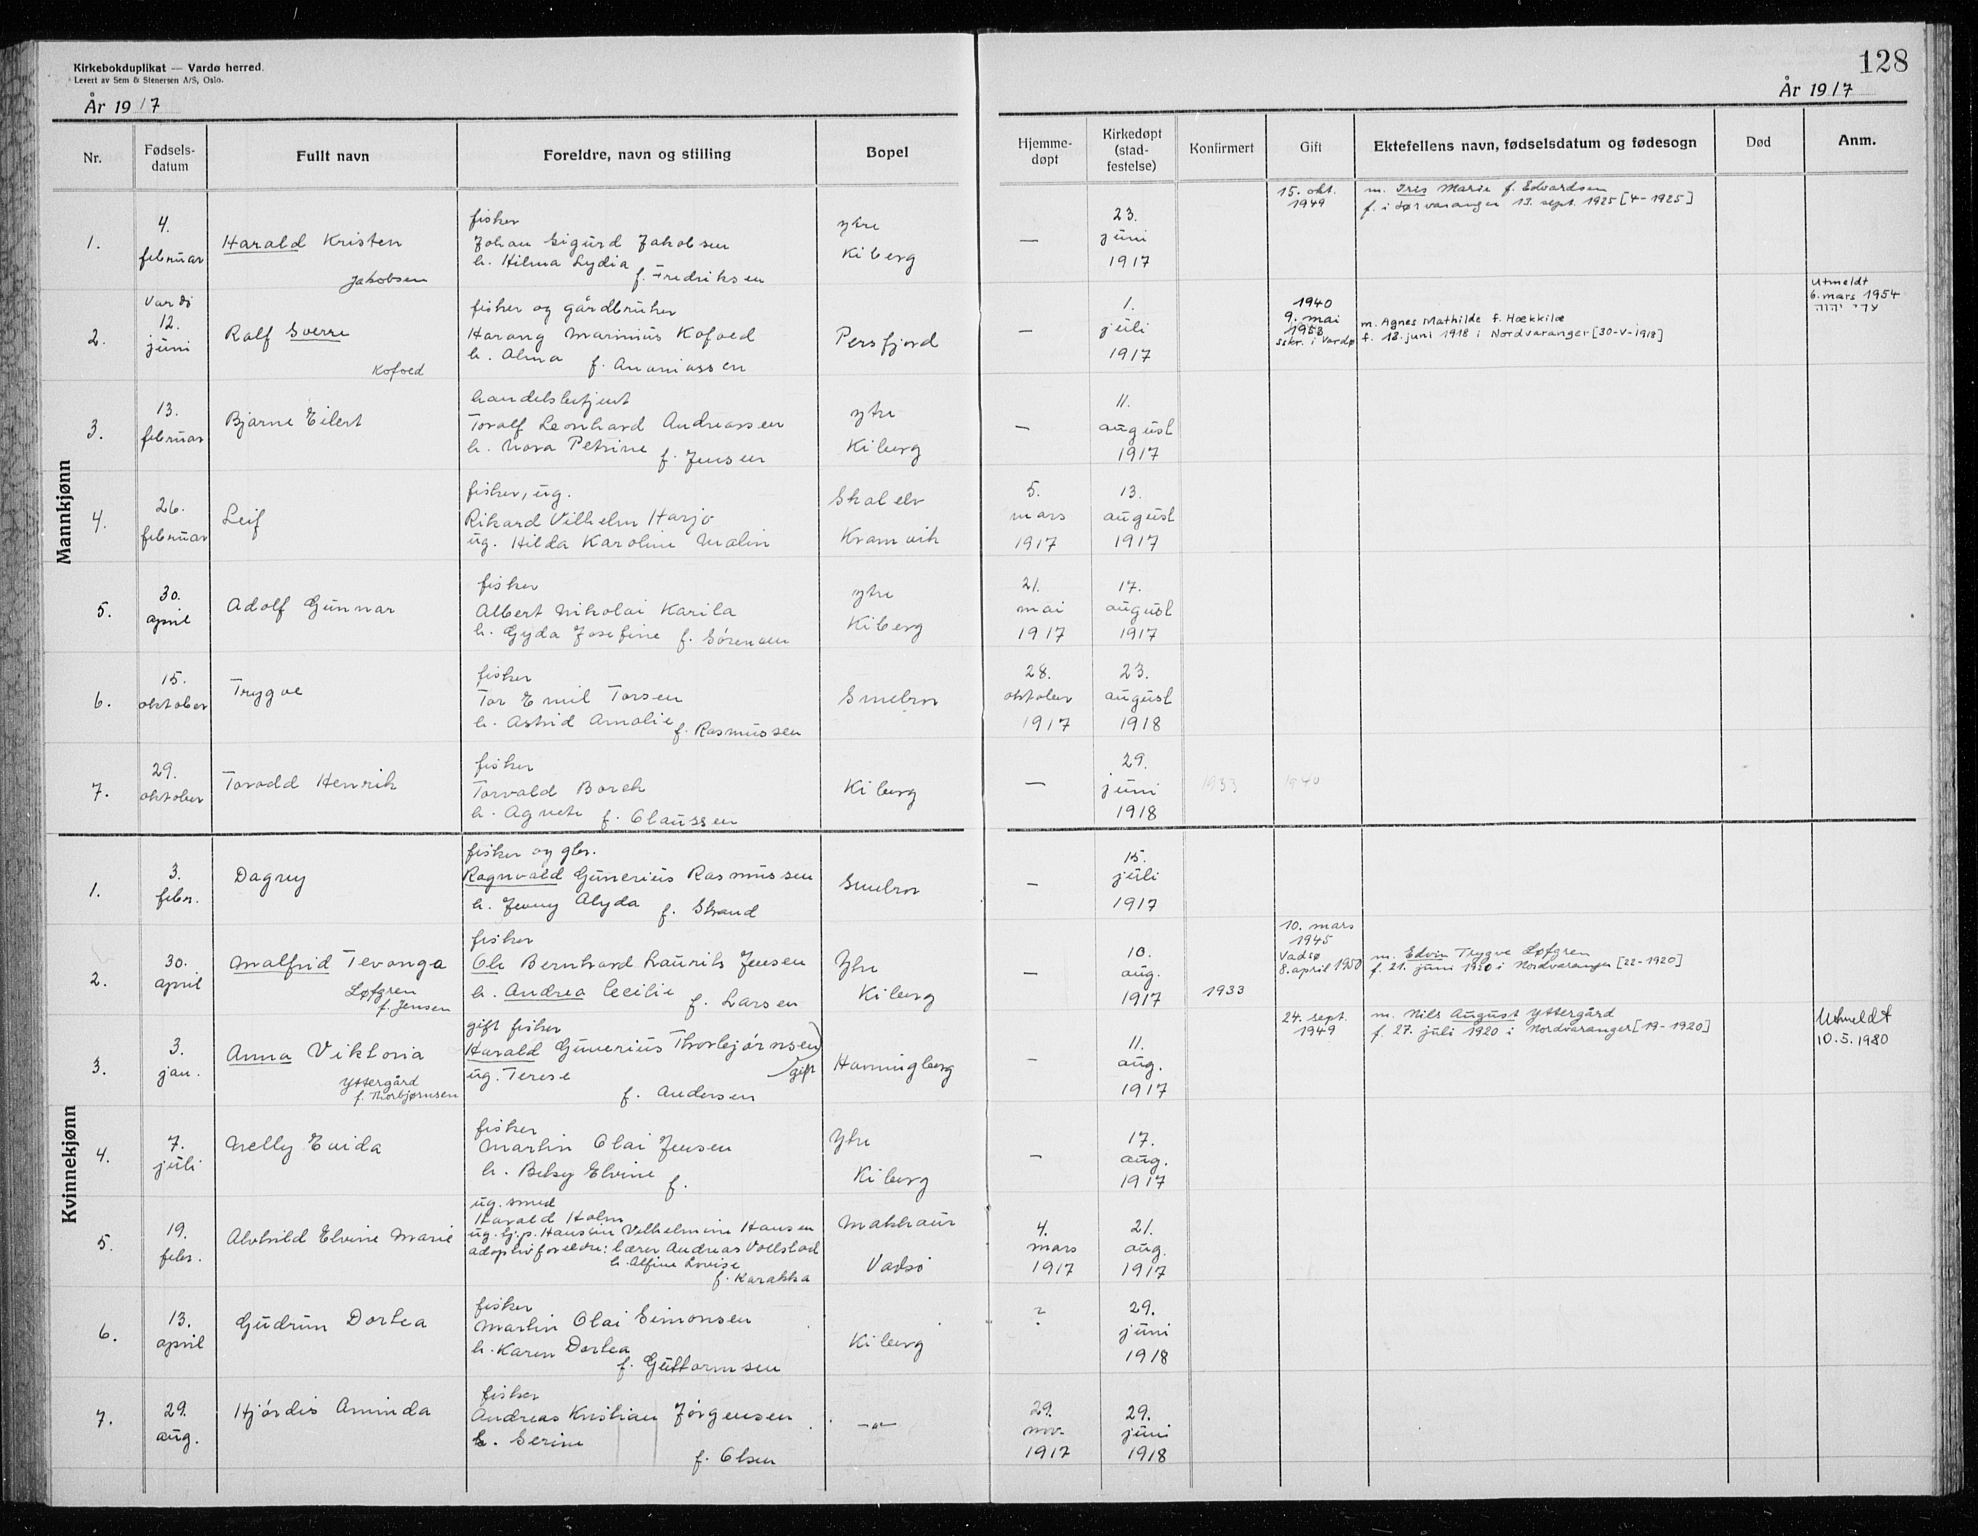 Kirkebokduplikat — Vardø herred.
Levert av Sem & Stenersen A/S, Oslo.
128
År 1917
År 1917
Nr. Fødsels-datum Fullt navn Foreldre, navn og stilling Bopel Hjemme-døpt Kirkedøpt (stad-festelse) Konfirmert Gift Ektefellens navn, fødselsdatum og fødesogn Død Anm.
Mannkjønn
15. okt. m. Iris Marie f. Edvardsen
1949 f. i Sørvaranger 13. sept. 1925 [4-1925]
4. fisker ytre 23.
1. februar Harald Kristen Johan Sigurd Jakobsen Kiberg — juni
h. Hilma Lydia 1917
Jakobsen f. Fredriksen
Utmeldt
Vardø fisker og gårdbruker 1. 1940 6. mars 1954
12. 9. mai עדי יהוה
2. juni Ralf Sverre Harang Marinius Kofoed Persfjord — juli 1953 m. Agnes Mathilde f. Hækkilæ
h. Alma 1917 sskr. i Vardø f. 12. juni 1918 i Nordvaranger [30-V-1918]
Kofoed f. Ananiassen
13. handelsbetjent ytre 11.
3. februar Bjarne Eilert Toralf Leonhard Andreassen Kiberg — august
h. Nora Petrine f. Jensen 1917
26. fisker, ug. Skalelv 5. 13.
4. februar Leif Rikard Vilhelm Harjo mars august
ug. Hilda Karoline Malin Kramvik 1917 1917
30. fisker ytre 21. 17.
5. april Adolf Gunnar Albert Nikolai Karila Kiberg mai august
h. Gyda Josefine f. Sørensen 1917 1917
15. fisker 28. 23.
6. oktober Trygve Tor Emil Torsen Smelror oktober august
h. Astrid Amalie f. Rasmussen 1917 1918
29. fisker 29.
7. oktober Torodd Henrik Torvald Borch Kiberg — juni 1933 1940
h. Agnete f. Claussen 1918
Kvinnekjønn
3. fisker og gbr. 15.
1. febr. Dagny Ragnvald Gunerius Rasmussen Smelror — juli
h. Jenny Alyda f. Strand 1917
10. mars
1945
30. fisker 10. Vadsø m. Edvin Trygve Løfgren
2. april Malfrid Tevanga Ole Bernhard Laurits Jensen Ytre — aug. 8. april 1950 f. 21. juni 1920 i Nordvaranger [22-1920]
Løfgren h. Andrea Cecilie f. Larsen Kiberg 1917 1933
f. Jensen
3. gift fisker 11. 24. sept. m. Nils August Yttergård Utmeldt
3. jan. Anna Viktoria Harald Gunerius Thorbjørnsen) Havningberg — aug. 1949 f. 27. juli 1920 i Nordvaranger [19-1920] 10.5.1980
Yttergård ug. Terese gift 1917
f. Thorbjørnsen f. Andersen
7. fisker Ytre 17.
4. juli Nelly Evida Martin Olai Jensen Kiberg — aug.
h. Betsy Elvine f. 1917
ug. smed
19. Harald Holm Makkaur 4. 21.
5. febr. Alvhild Elvine Marie ug. tj.p. Hansine Vilhelmine Hansen mars aug.
adoptivforeldre: lærer Andreas Vollstad Vadsø 1917 1917
h. Alfine Lovise
f. Karakka
13. fisker ? 29.
6. april Gudrun Dortea Martin Olai Simonsen Kiberg juni
h. Karen Dortea 1918
f. Guttormsen
29. fisker 29. 29.
7. aug. Hjørdis Aminda Andreas Kristian Jørgensen —"— nov. juni
h. Serine 1917 1918
f. Olsen